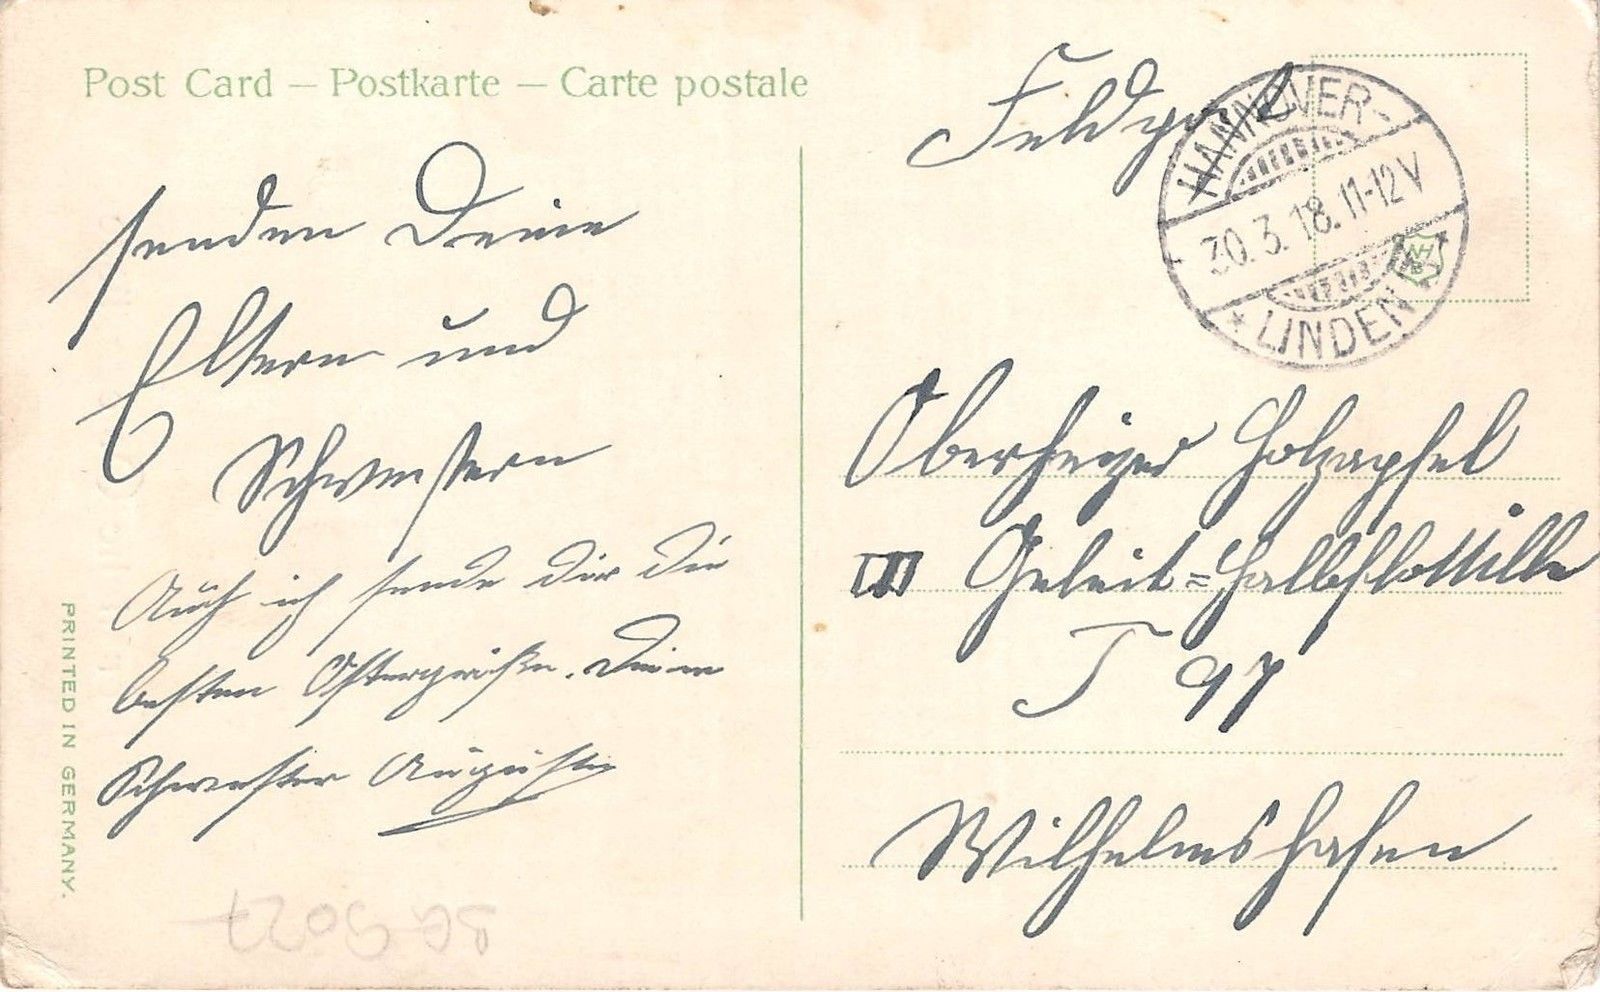 Post Card – Postkarte – Carte postale
senden Deine
Eltern und
Schwestern
Auch ich sende dir die
besten Ostergrüße. Deine
Schwester Auguste
PRINTED IN GERMANY.
Feldpost
HANNOVER-
30.3.18. 11-12 V
* LINDEN
Oberheizer Holzapfel
III Geleit=Halbflottille
T 97
Wilhelmshafen